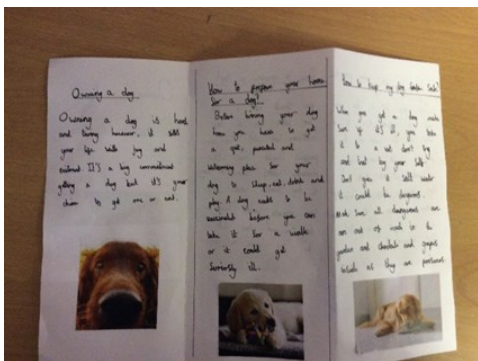 Owning a dog
Owning a dog is hard
and tiring however, it fills
your life with joy and
It's a big commitment
getting a dog but it's your
choice to get one or not.
How to prepare your home
for a dog?
Before bringing your dog
home you have to get
a quiet, peaceful and
welcoming place for your
dog to sleep, eat, drink and
play. A dog needs to be
vaccinated before you can
take it for a walk
or it could get
seriously ill.
How to keep my dog
When you get a dog make
sure if it's ill, you take
it to a vet don't try
and heal by your self
you it self
it could be dangerous.
sure all dangerous are
out of reach in the
garden and chocolate and grapes
inside as they are poisonous.